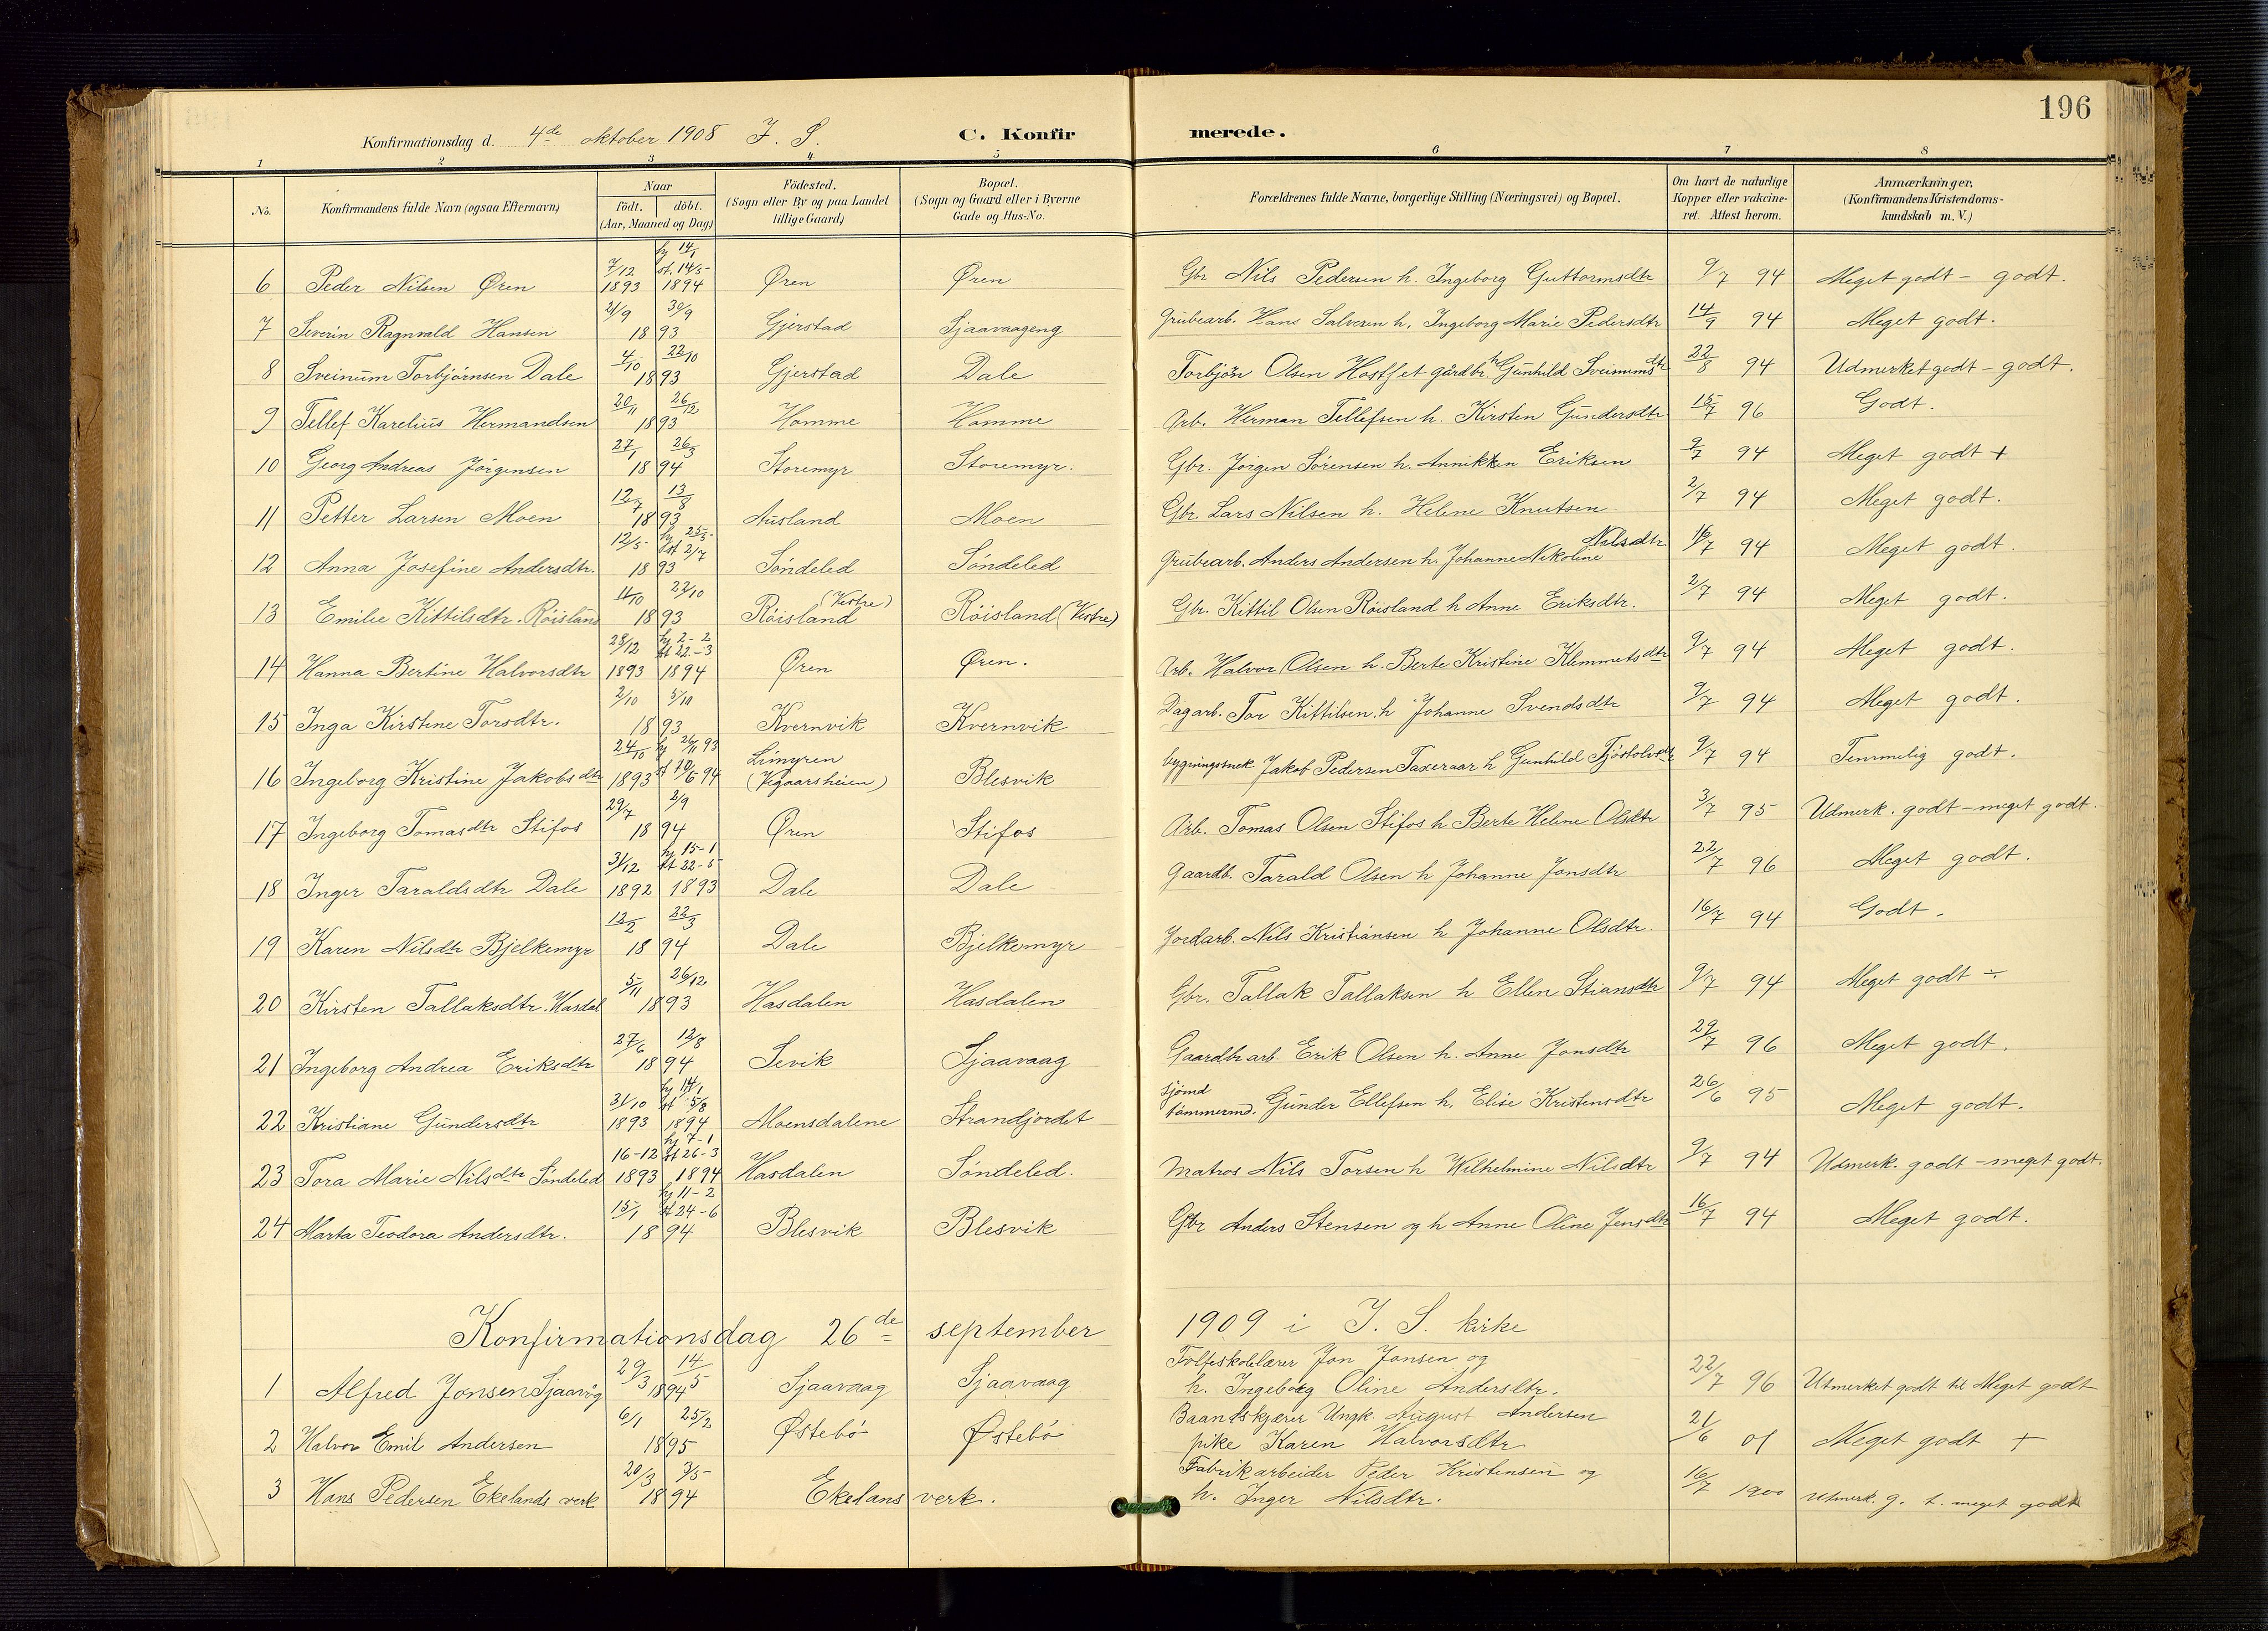 196
Konfirmationsdag d. 4de oktober 1908 I. S. C. Konfirmerede.
1 2 3 4 5 6 7 8
No. Konfirmandens fulde Navn (ogsaa Efternavn) Naar födt. döbt. (Aar, Maaned og Dag) Födested. (Sogn eller By og paa Landet tillige Gaard) Bopæl. (Sogn og Gaard eller i Byerne Gade og Hus-No. Forældrenes fulde Navne, borgerlige Stilling (Næringsvei) og Bopæl. Om havt de naturlige Kopper eller vakcineret. Attest herom. Anmærkninger, (Konfirmandens Kristendomskundskab m. V.)
6 Peder Nilsen Øren 7/12 1893 hj 14/1 st. 14/5 1894 Øren Øren Gbr Nils Pedersen h. Ingeborg Guttormsdtr 9/7 94 Meget godt - godt.
7 Severin Ragnvald Hansen 21/9 30/9 1893 Gjerstad Sjaavaageng Grubearb. Hans Salvesen h. Ingeborg Marie Pedersdtr 14/9 94 Meget godt.
8 Sveinum Torbjörnsen Dale 4/10 22/10 1893 Gjerstad Dale Torbjön Olsen gårdbr. h Gunhild Sveinumsdtr 22/8 94 Udmerket godt - godt.
9 Tellef Karelius Hermandsen 20/11 26/12 1893 Homme Homme Arb. Herman Tellefsen h. Kirsten Gundersdtr 15/7 96 Godt.
10 Georg Andreas Jörgensen 27/1 26/3 1894 Storemyr Storemyr. Gbr. Jörgen Sörensen h. Annikken Eriksen 9/7 94 Meget godt +
11 Petter Larsen Moen 12/7 13/8 1893 Ausland Moen Gbr. Lars Nilsen h. Helene Knutsen 2/7 94 Meget godt.
12 Anna Josefine Andersdtr. 12/5 hj 25/5 st 2/7 1893 Söndeled Söndeled Grubearb. Anders Andersen h. Johanne Nikoline Nilsdtr 16/7 94 Meget godt.
13 Emilie Kittilsdtr. Röisland 11/10 22/10 1893 Röisland (Vestre) Röisland (Vestre) Gbr. Kittil Olsen Röisland h Anne Eriksdtr. 2/7 94 Meget godt.
14 Hanna Bertine Halvorsdtr 28/12 1893 hj 2-2 st 22-3 1894 Øren Øren. Arb. Halvor Olsen h. Berte Kristine Klemmetsdtr 9/7 94 Meget godt.
15 Inga Kirstine Torsdtr. 2/10 5/10 1893 Kvernvik Kvernvik Dagarb. Tor Kittilsen. h Johanne Svendsdtr 9/7 94 Meget godt.
16 Ingeborg Kristine Jakobsdtr 24/10 1893 hj 26/11 93 st 10/6 94 Limyren (Vegaarsheien) Blesvik bygningssnek Jakob Pedersen Taxeraar h Gunhild 9/7 94 Temmelig godt.
17 Ingeborg Tomasdtr Stifos 29/7 2/9 1894 Øren Stifos Arb. Tomas Olsen Stifos h Berte Helene Olsdtr 3/7 95 Udmerk. godt - meget godt.
18 Inger Taraldsdtr Dale 31/12 1892 hj 15-1 st 22-5 1893 Dale Dale Gaardb. Tarald Olsen h Johanne Jonsdtr 22/7 96 Meget godt.
19 Karen Nilsdtr Bjelkemyr 12/2 22/3 1894 Dale Bjelkemyr Jordarb. Nils Kristiansen h Johanne Olsdtr. 16/7 94 Godt.
20 Kirsten Tallaksdtr. Hasdal 5/11 26/12 1893 Hasdalen Hasdalen Gbr. Tallak Tallaksen h Ellen Stiansdtr 9/7 94 Meget godt ÷
21 Ingeborg Andrea Eriksdtr 27/6 12/8 1894 Sevik Sjaavaag Gaardbr arb. Erik Olsen h. Anne Jonsdtr 29/7 96 Meget godt.
22 Kristiane Gundersdtr 31/10 1893 hj 14/1 st 5/8 1894 Moensdalene Strandjordet sjömd tömmermd. Gunder Ellefsen h. Elise Kristensdtr 26/6 95 Meget godt.
23 Tora Marie Nilsdtr Söndeled 16-12 1893 hj 7-1 st 26-3 1894 Hasdalen Söndeled. Matros Nils Torsen h Wilhelmine Nilsdtr 9/7 94 Udmerk. godt - meget godt.
24 Marta Teodora Andersdtr. 15/1 hj 11-2 st 24-6 1894 Blesvik Blesvik Gbr Anders Stensen og h Anne Oline Jensdtr 16/7 94 Meget godt.
Konfirmationsdag 26de september 1909 i I. S. kirke
1 Alfred Jonsen Sjaavåg 29/3 14/5 1894 Sjaavaag Sjaavaag Folkeskolelærer Jon Jonsen og h. Ingeborg Oline Andersdtr. 22/7 96 Utmerket godt til Meget godt
2 Halvor Emil Andersen 6/1 25/2 1895 Østebö Østebö Baandskjærer Ungk. August Andersen pike Karen Halvorsdtr 21/6 01 Meget godt +
3 Hans Pedersen Ekelands verk 20/3 3/5 1894 Ekelans verk. Fabrikarbeider Peder Kristensen og h. Inger Nilsdtr. 16/7 1900 Utmerk. g. t. meget godt